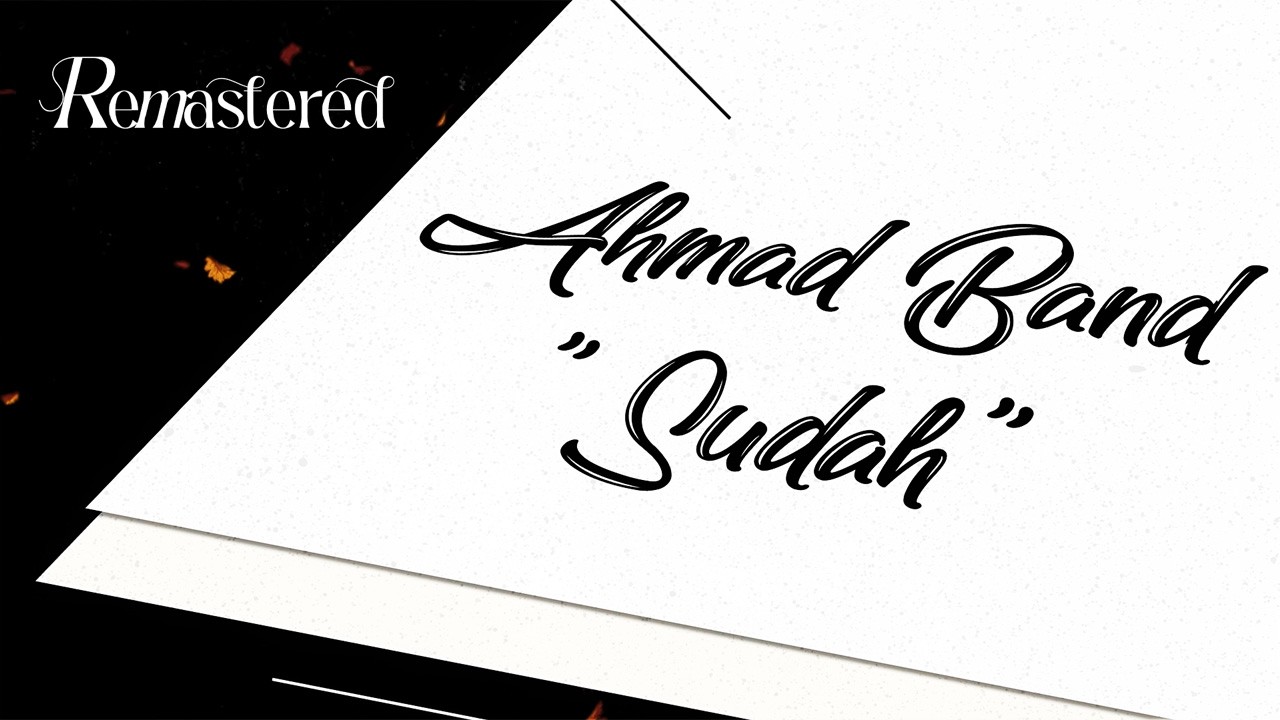 Remastered
Ahmad Band
”Sudah”